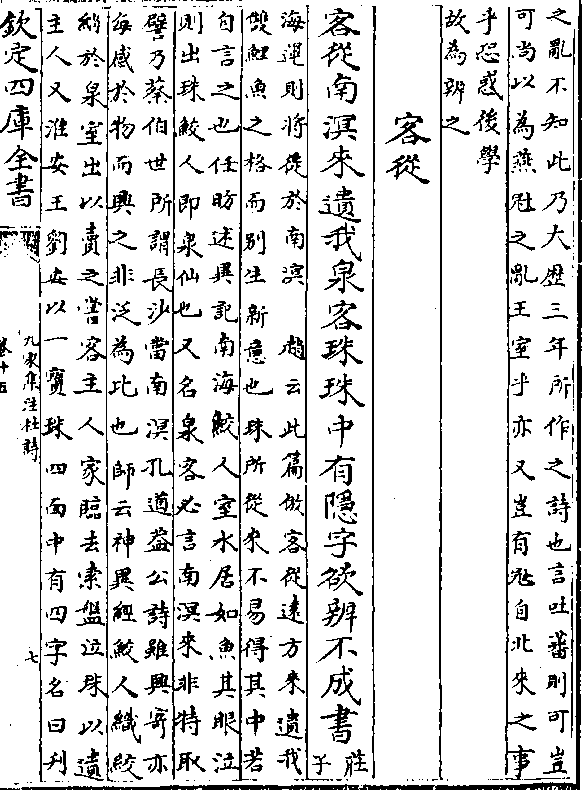 之亂不知此乃大歷三年所作之詩也言吐蕃則可豈
可尚以為燕尅之亂王室乎亦又豈有尅自北來之事
乎恐惑後學
故為辨之
客從
客從南溟來遺我泉客珠珠中有隱字欲辨不成書莊
子
海運則將徙於南溟 趙云此篇倣客從遠方來遺我
雙鯉魚之格而別生新意也珠所從來不易得其中若
自言之也任昉述異記南海鮫人室水居如魚其眼泣
則出珠鮫人即泉仙也又名泉客必言南溟來非特取
譬乃蔡伯世所謂長沙當南溟孔道蓋公詩雖興寄亦
每感於物而興之非泛為此也師云神異經鮫人織綃
綃於泉室出以賣之嘗客主人家臨去索盤泣珠以遺
主人又淮安王劉安以一寶珠四面中有四字名曰利
欽定四庫全書
九家集注杜詩
卷十五
七